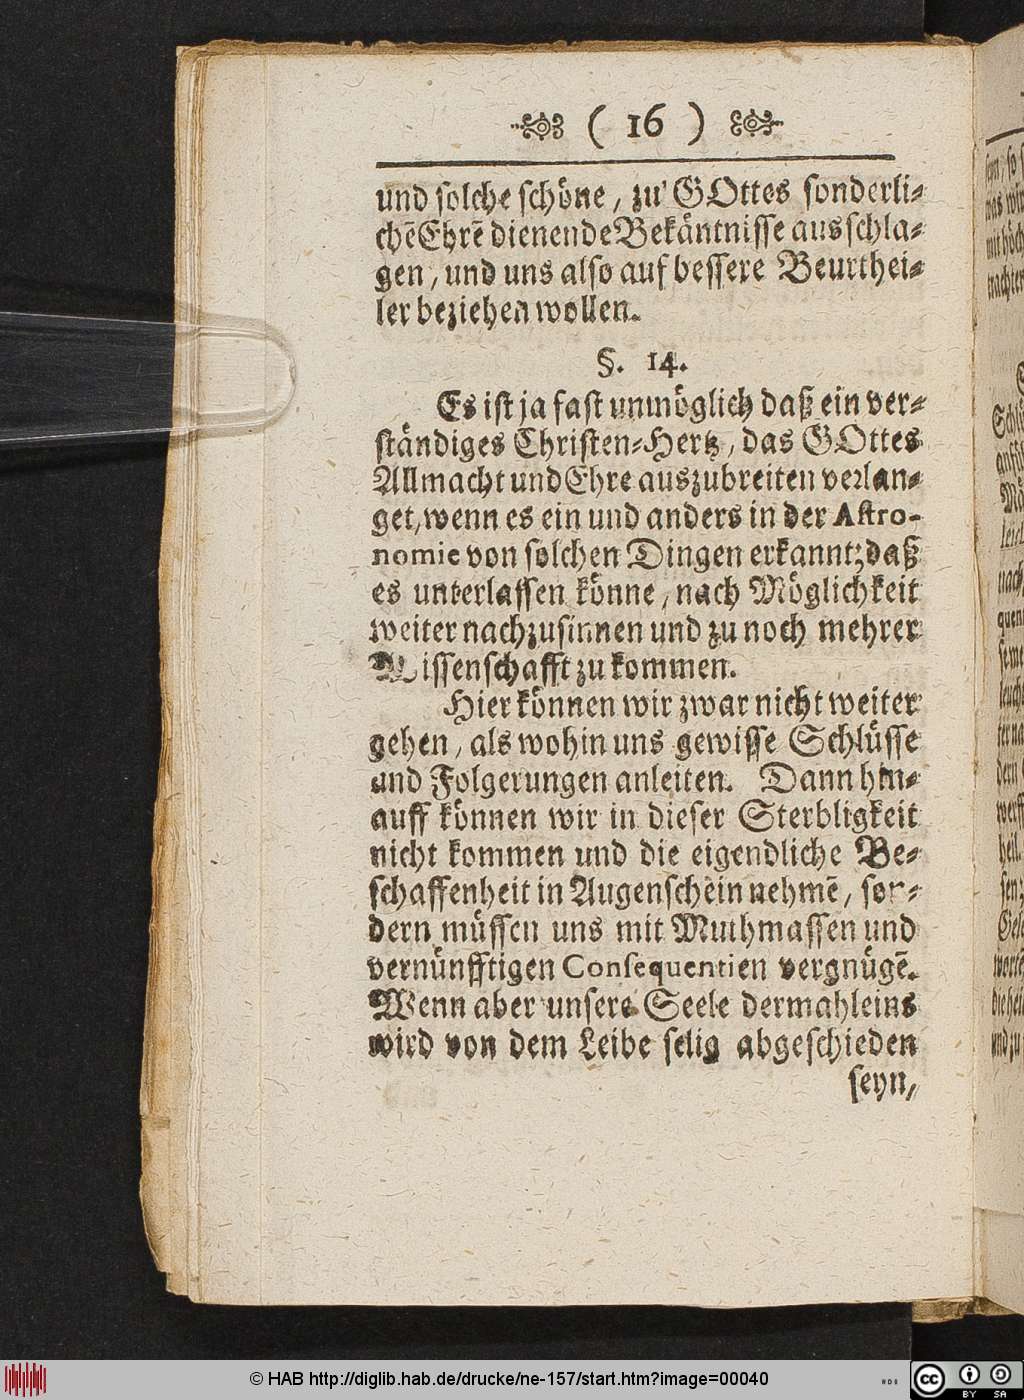 ( 16 )
und solche schöne, zu GOttes sonderli-
chẽ Ehrẽ dienende Bekäntnisse ausschla-
gen, und uns also auf bessere Beurthei-
ler beziehen wollen.
§. 14.
Es ist ja fast unmöglich daß ein ver-
ständiges Christen-Hertz, das GOttes
Allmacht und Ehre auszubreiten verlan-
get, wenn es ein und anders in der Astro-
nomie von solchen Dingen erkannt; daß
es unterlassen könne, nach Möglichkeit
weiter nachzusinnen und zu noch mehrer
Wissenschafft zu kommen.
Hier können wir zwar nicht weiter
gehen, als wohin uns gewisse Schlüsse
und Folgerungen anleiten. Dann hin-
auff können wir in dieser Sterbligkeit
nicht kommen und die eigendliche Be-
schaffenheit in Augenschein nehmẽ, son-
dern müssen uns mit Muthmassen und
vernünfftigen Consequentien vergnügẽ.
Wenn aber unsere Seele dermahleins
wird von dem Leibe selig abgeschieden
seyn,
© HAB http://diglib.hab.de/drucke/ne-157/start.htm?image=00040